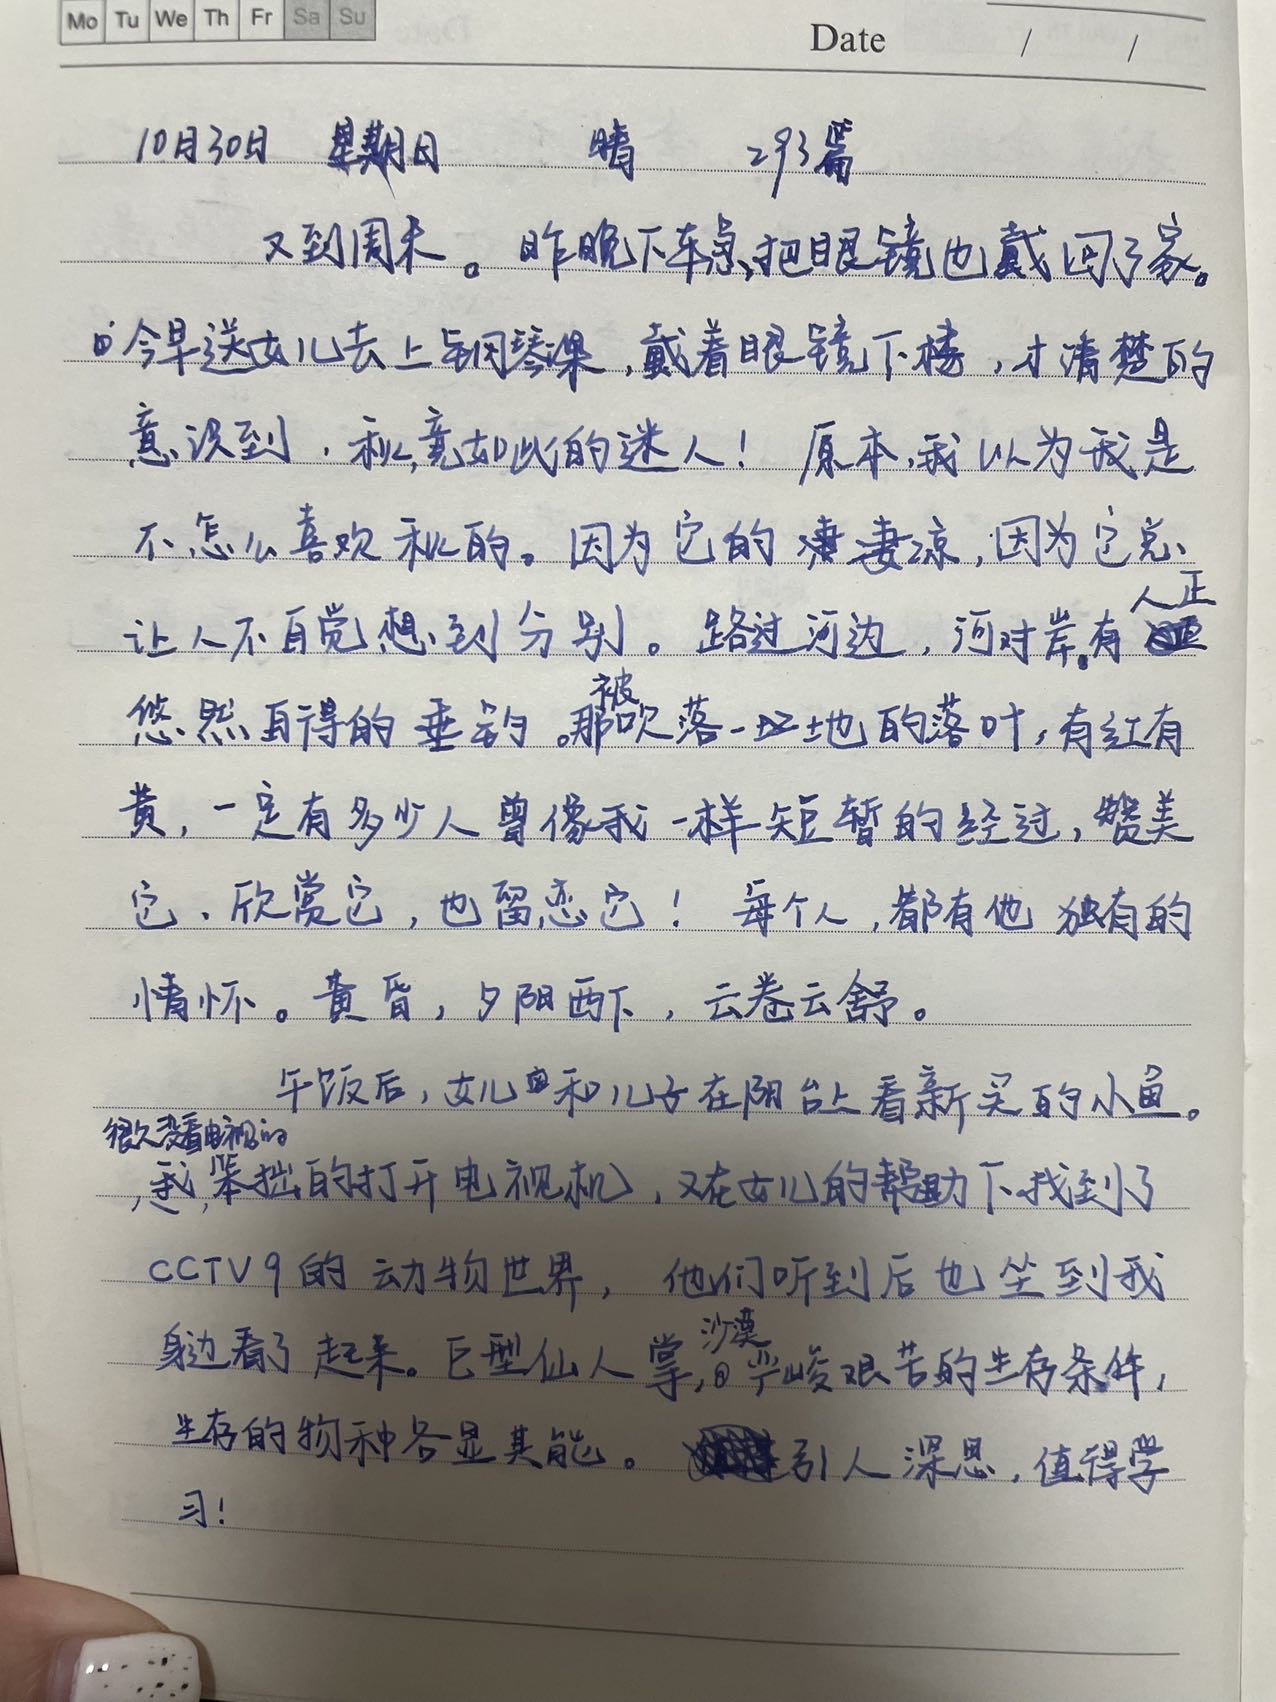 Mo Tu We Th Fr Sa Su
Date / /
10月30日 星期日 晴 293篇
又到周末。昨晚下车急,把眼镜也戴回了家。
今早送女儿去上钢琴课,戴着眼镜下楼,才清楚的
意识到,秋竟如此的迷人!原本,我以为我是
不怎么喜欢秋的。因为它的凄凉,因为它总
让人不自觉想到分别。路过河边,河对岸有人正
悠然自得的垂钓。那被吹落一地的落叶,有红有
黄,一定有多少人曾像我一样短暂的经过,赞美
它、欣赏它,也留恋它!每个人,都有他独有的
情怀。黄昏,夕阳西下,云卷云舒。
午饭后,女儿和儿子在阳台上看新买的小鱼。
很久没看电视的
我,笨拙的打开电视机,又在女儿的帮助下找到了
CCTV9的动物世界,他们听到后也坐到我
身边看了起来。巨型仙人掌,沙漠峻艰苦的生存条件,
生存的物种各显其能。引人深思,值得学
习!